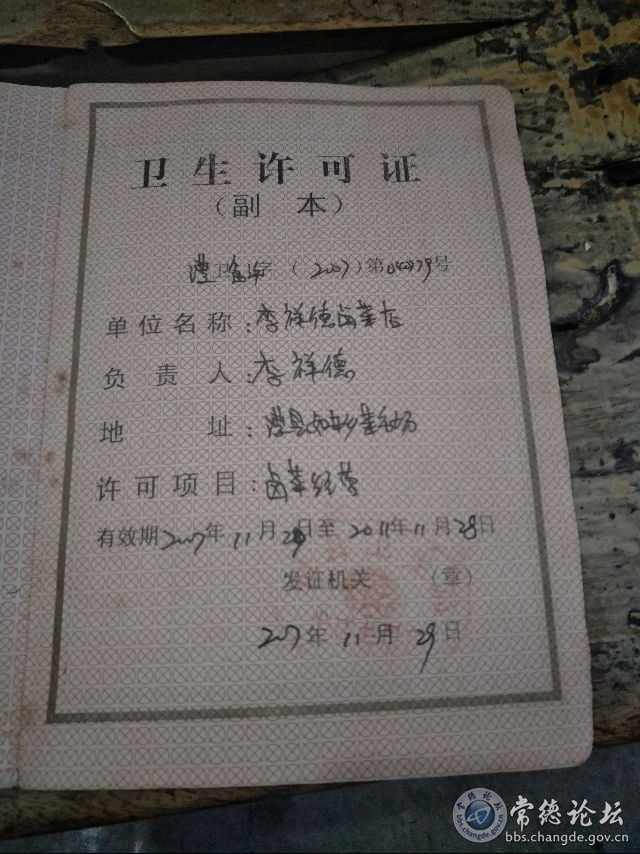 卫生许可证
（副 本）
澧卫食字（2007）第 号
单位名称：李祥德卤菜店
负责人：李祥德
地址：澧县
许可项目：卤菜经营
有效期2007年11月29日至2011年11月28日
发证机关 （章）
2007年11月29日
常德论坛
bbs.changde.gov.cn